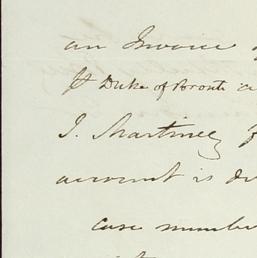 an Invoice
Duke of Bronte
J. Martinez
account is
case number